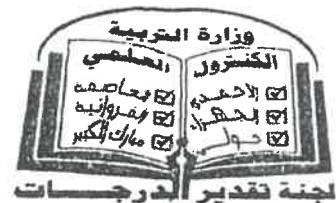 وزارة التربية
الكنترول العلمي
☑ الأحمدي ☑ العاصمة
☑ الجهراء ☑ الفروانية
☑ حولي ☑ مبارك الكبير
لجنة تقدير الدرجات